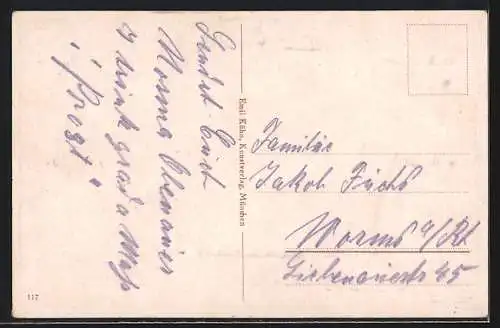 Sendet Euch
Norma Obenauer
trink grad a Mass
"Prost"
Emil Kühn, Kunstverlag, München
Familie
Jakob Fuchs
Worms a/Rh
Liebenauerstr 45
117